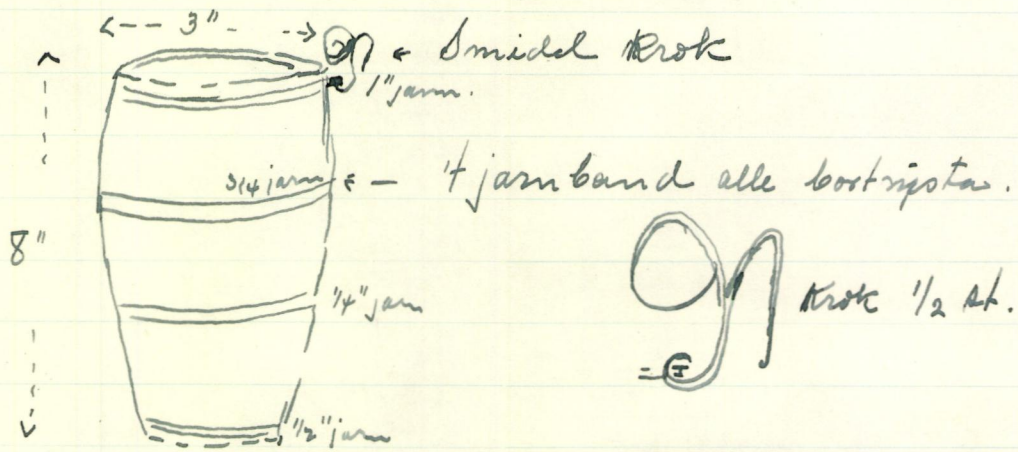 3"
← Smidd Krok
1" jarn.
3/4 jarn ← — 4 jarnband alle bortrysta.
8"
1/4" jarn
Krok 1/2 st.
1/2" jarn